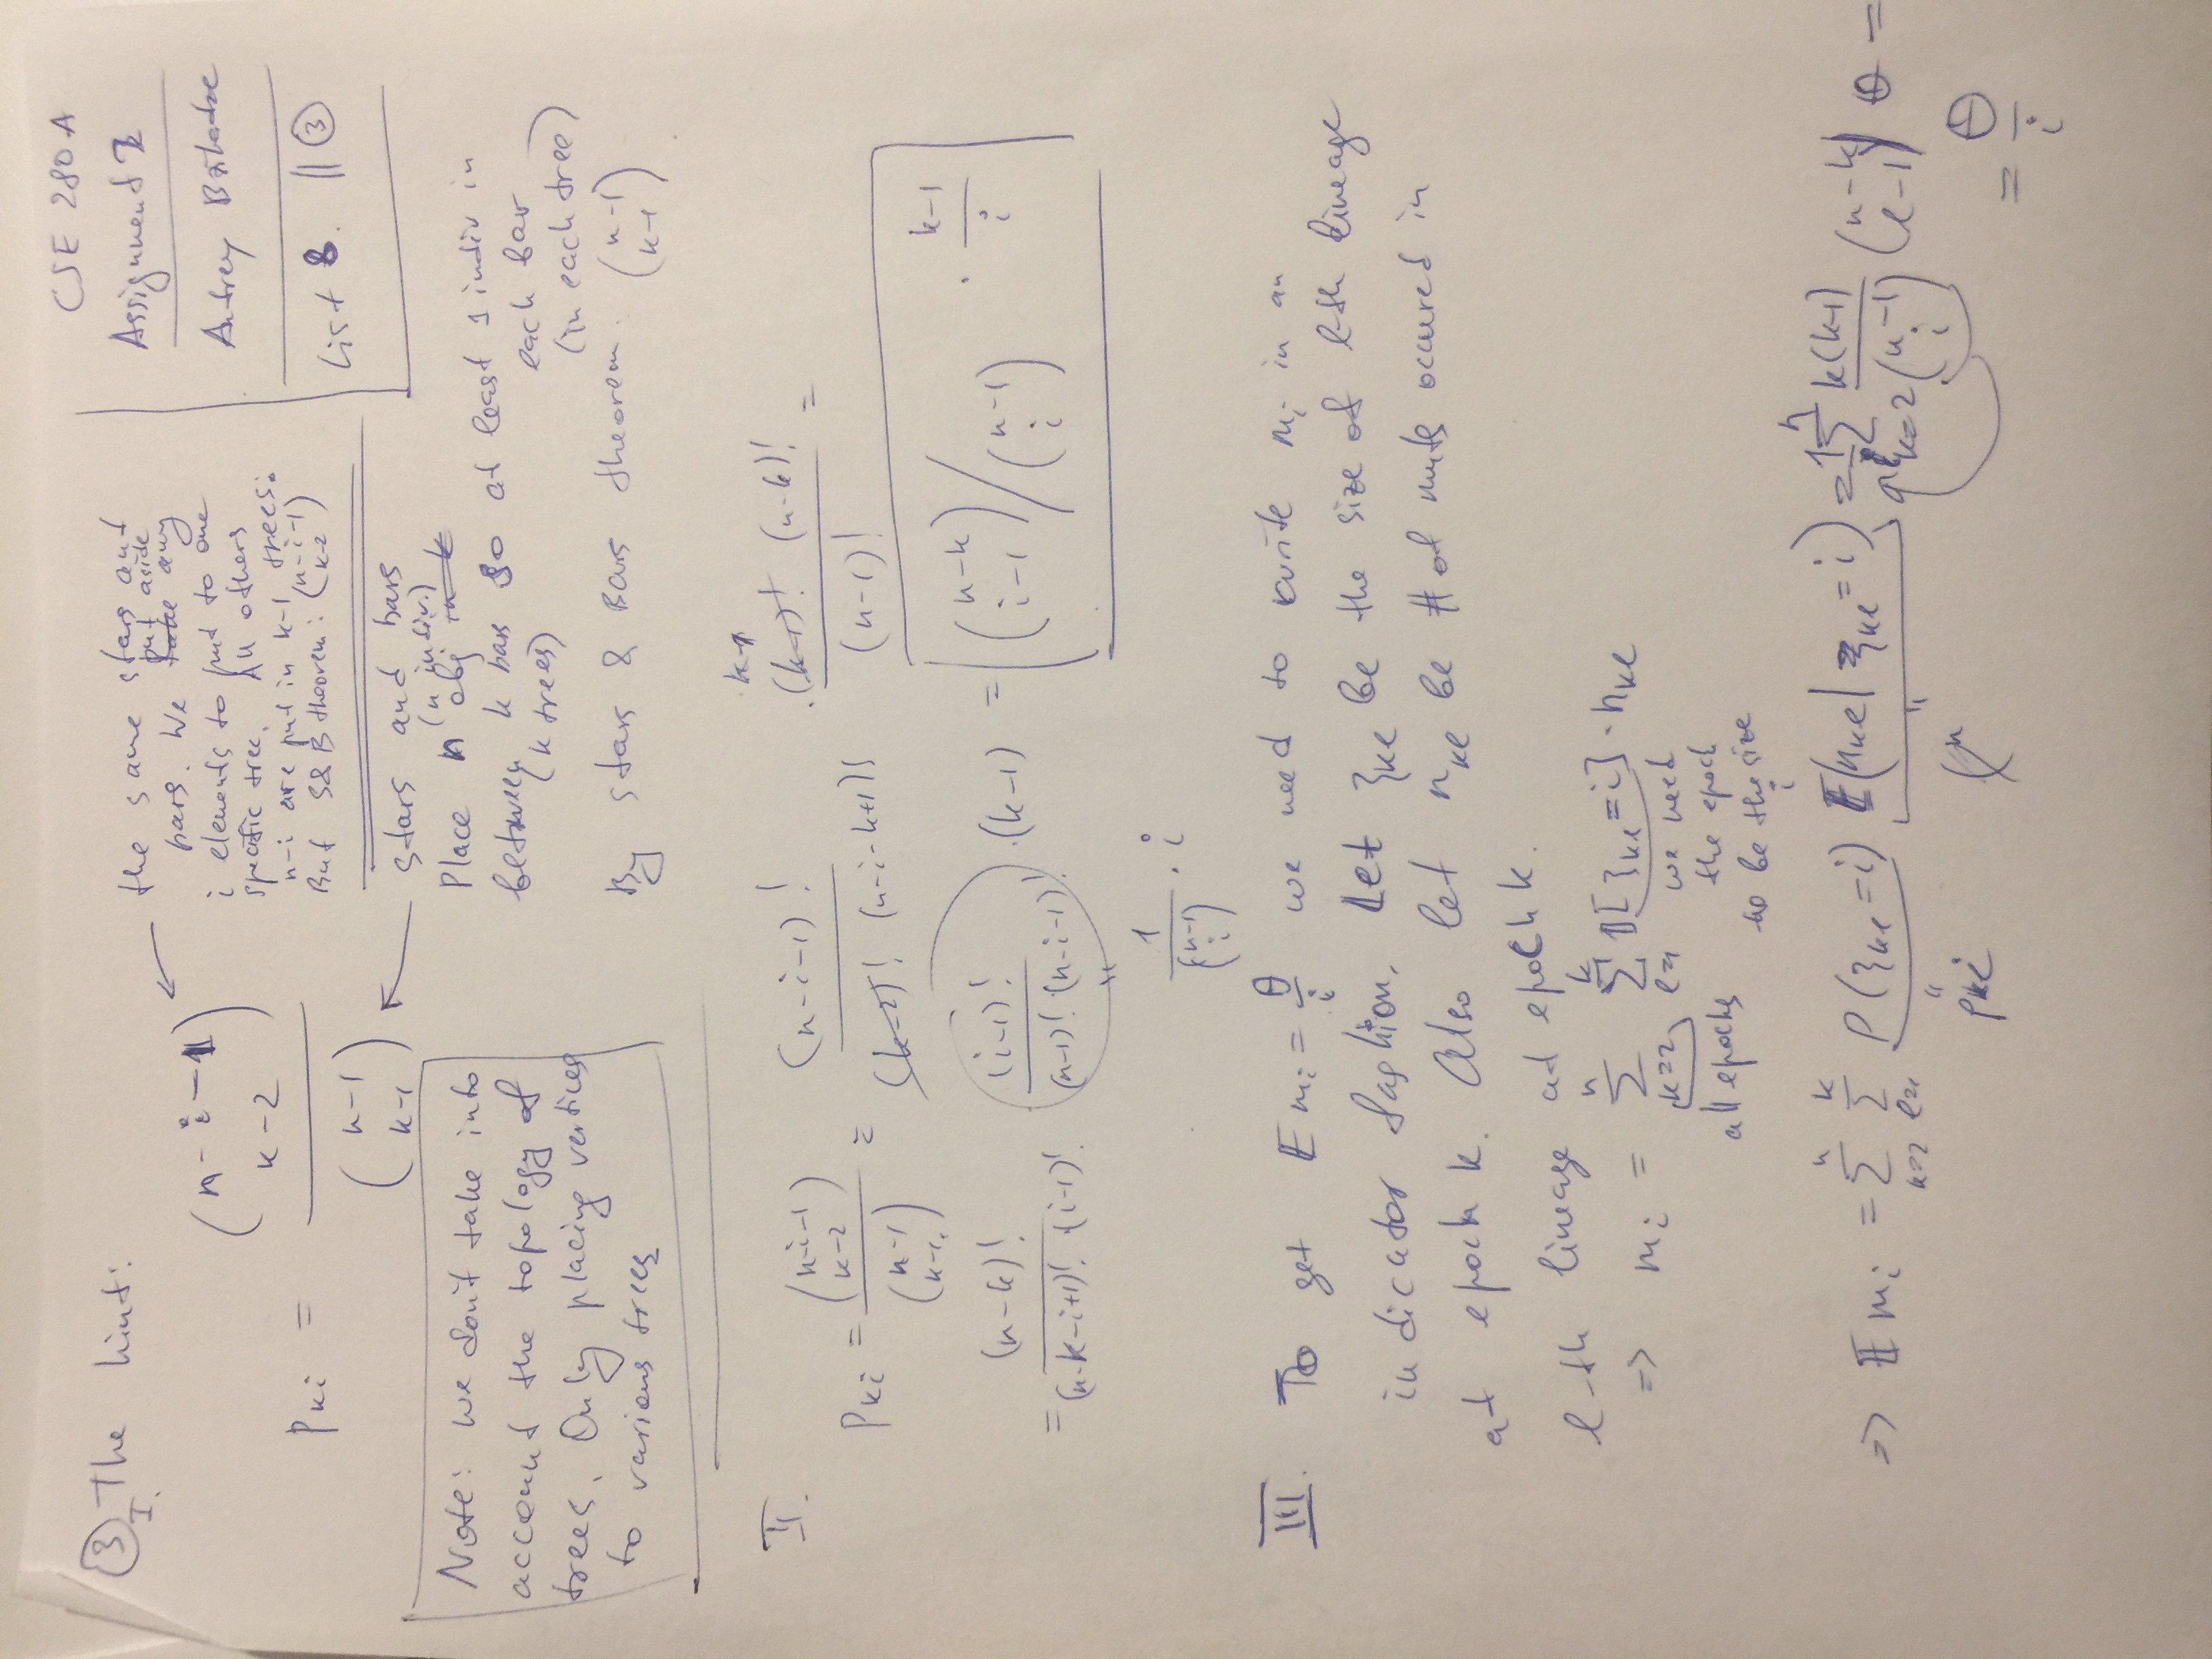 CSE 280A
Assignment 2
Andrey
List 8. || ③
③ I. The hint:
p_{ki} = \frac{\binom{n-i-1}{k-2}}{\binom{n-1}{k-1}}
the same stars and
bars. We put aside any
i elements to put to one
specific tree. All others
n-i are put in k-1 trees:
But S&B theorem: \binom{n-i-1}{k-2}
stars and bars
(n indiv.)
Place n obj
between k bars so at least 1 indiv in
(k trees) each bar
(in each tree)
By stars & Bars theorem. \binom{n-1}{k-1}
Note: we don't take into
account the topology of
trees. Only placing vertices
to various trees
II.
p_{ki} = \frac{\binom{n-i-1}{k-2}}{\binom{n-1}{k-1}} = \frac{(n-i-1)!}{(k-2)! (n-i-k+1)!} \cdot \frac{(k-1)! (n-k)!}{(n-1)!} =
k-1
= \frac{(n-k)!}{(n-k-i+1)! \cdot (i-1)!} \cdot \frac{(i-1)!}{(n-1)! \cdot (n-i-1)!} \cdot (k-1) = \binom{n-k}{i-1} / \binom{n-1}{i} \cdot \frac{k-1}{i}
"
\frac{1}{\binom{n-1}{i}} \cdot i
III. To get E m_i = \frac{θ}{i} we need to write m_i in an
indicator fashion. Let ξ_{kl} be the size of l-th lineage
at epoch k. Also let n_{kl} be # of muts occured in
l-th lineage at epoch k.
=> m_i = \sum_{k=2}^{n} \sum_{l=1}^{k} 1[ξ_{kl} = i] \cdot n_{kl}
all epochs
we need
the epoch
to be the size
i
=> E m_i = \sum_{k=2}^{n} \sum_{l=1}^{k} P(ξ_{kl} = i) E(n_{kl} | ξ_{kl} = i) = \frac{1}{i} \sum_{k=2}^{n} \frac{k(k-1)}{\binom{n-1}{i}} \binom{n-k}{l-1} θ =
" "
p_{ki}
= \frac{θ}{i}